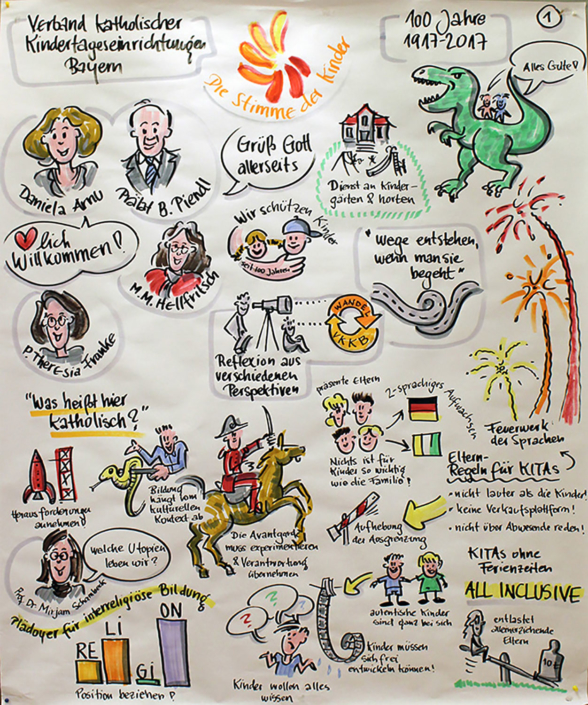 Verband katholischer
Kindertageseinrichtungen
Bayern
Die Stimme der Kinder
100 Jahre
1917-2017
1
Alles Gute!
Daniela Arnu
Prälat B. Piendl
Grüß Gott
allerseits
Dienst an Kinder-
gärten & Horten
♥lich
Willkommen!
M.M. Hellfritsch
Wir schützen Kinder
seit 100 Jahren
"Wege entstehen,
wenn man sie
begeht"
P. Theresia Franke
WANDEL
VKKB
Reflexion aus
verschiedenen
Perspektiven
"Was heißt hier
katholisch?"
präsente Eltern
2-sprachiges Aufwachsen
Nichts ist für
Kinder so wichtig
wie die Familie!
Feuerwerk
der Sprachen
Herausforderungen
annehmen
Bildung
hängt vom
kulturellen
Kontext ab
Die Avantgarde
muss experimentieren
& Verantwortung
übernehmen
Eltern-
Regeln für KITAs
• nicht lauter als die Kinder!
• keine Verkaufsplattform!
• nicht über Abwesende reden!
Aufhebung
der Ausgrenzung
Prof. Dr. Mirjam
welche Utopien
leben wir?
autentische Kinder
sind ganz bei sich
KITAs ohne
Ferienzeiten
ALL INCLUSIVE
Plädoyer für interreligiöse Bildung
RE LI Gi ON
Position beziehen!
? ? ?
Kinder wollen alles
wissen
Kinder müssen
sich frei
entwickeln können!
entlastet
alleinerziehende
Eltern